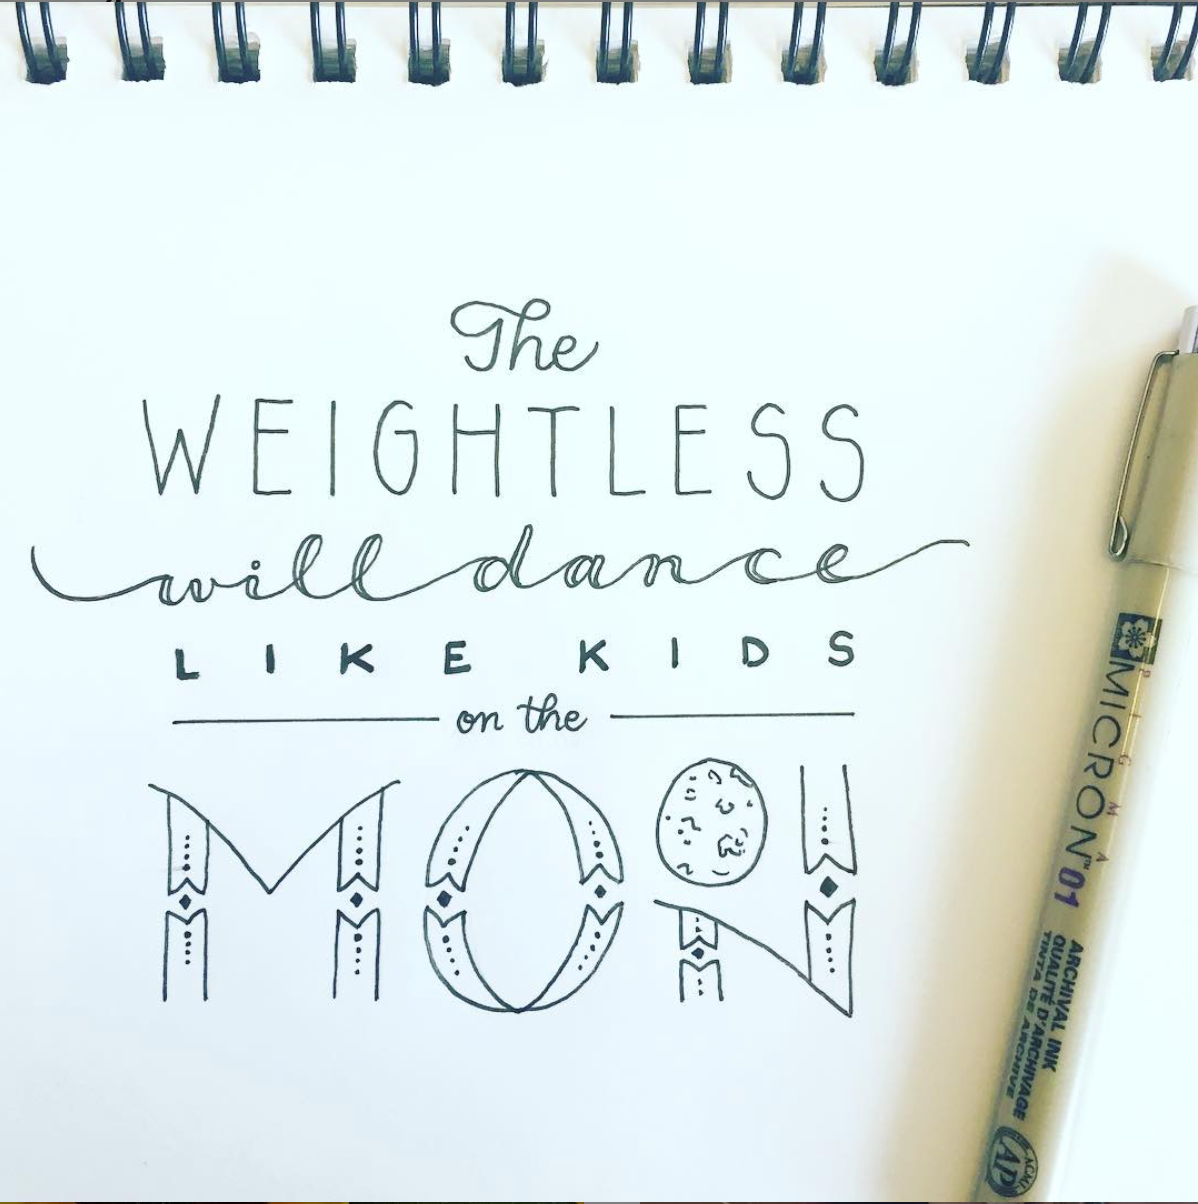 The
WEIGHTLESS
will dance
LIKE KIDS
on the
MOON
PIGMA
MICRON™ 01
ARCHIVAL INK
QUALITÉ D'ARCHIVAGE
TINTA DE ARCHIVE
ACMI
AP